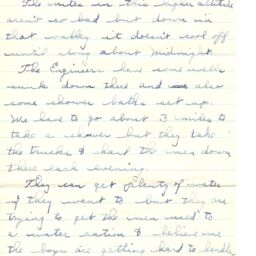 The nites in this higher altitude
aren't so bad but down in
that valley it doesn't cool off
until along about midnight.
The Engineers have some wells
sunk down there and also
some shower baths set up.
We have to go about 3 miles to
take a shower but they take
the trucks & haul the men down
there each evening.
They can get plenty of water
if they want to but they are
trying to get the men used to
a water ration & believe me
the boys are getting hard to handle